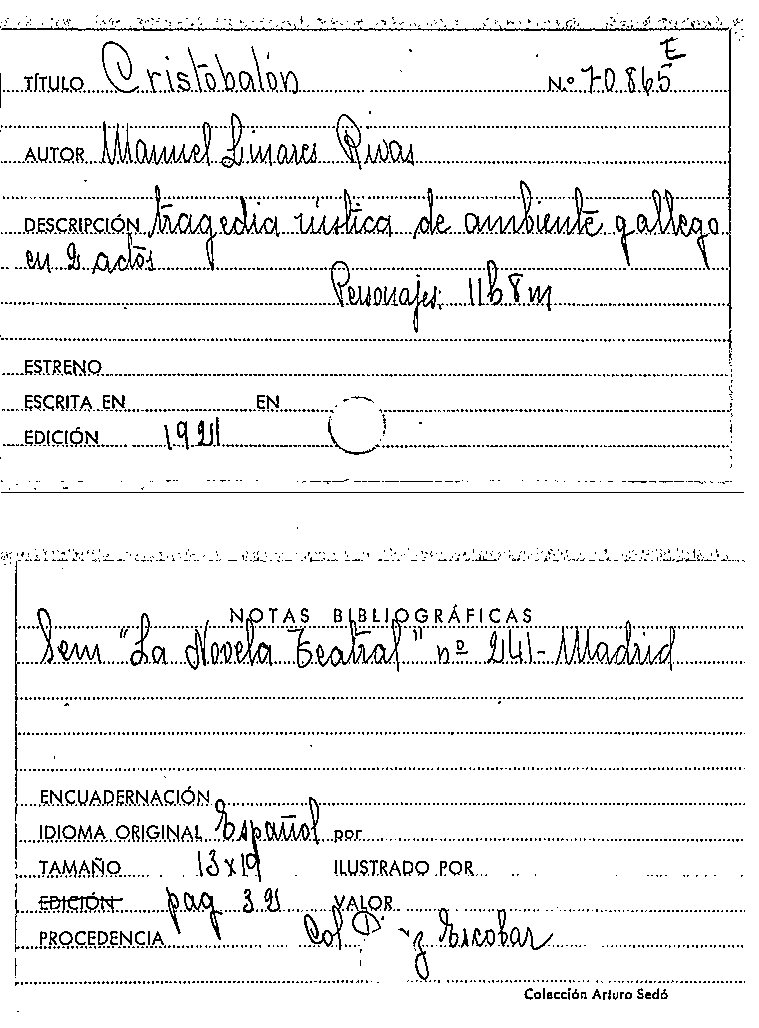 TÍTULO Cristobalón N.º 70865 E
AUTOR Manuel Linares Rivas
DESCRIPCIÓN tragedia rústica de ambiente gallego
en 2 actos
Personajes: 11h 8m
ESTRENO
ESCRITA EN EN
EDICIÓN 1921
NOTAS BIBLIOGRÁFICAS
Sem "La Novela Teatral" nº 241 - Madrid
ENCUADERNACIÓN
IDIOMA ORIGINAL Español por
TAMAÑO 13x19 ILUSTRADO POR
EDICIÓN pag 32 VALOR
PROCEDENCIA Col D z Escobar
Colección Arturo Sedó